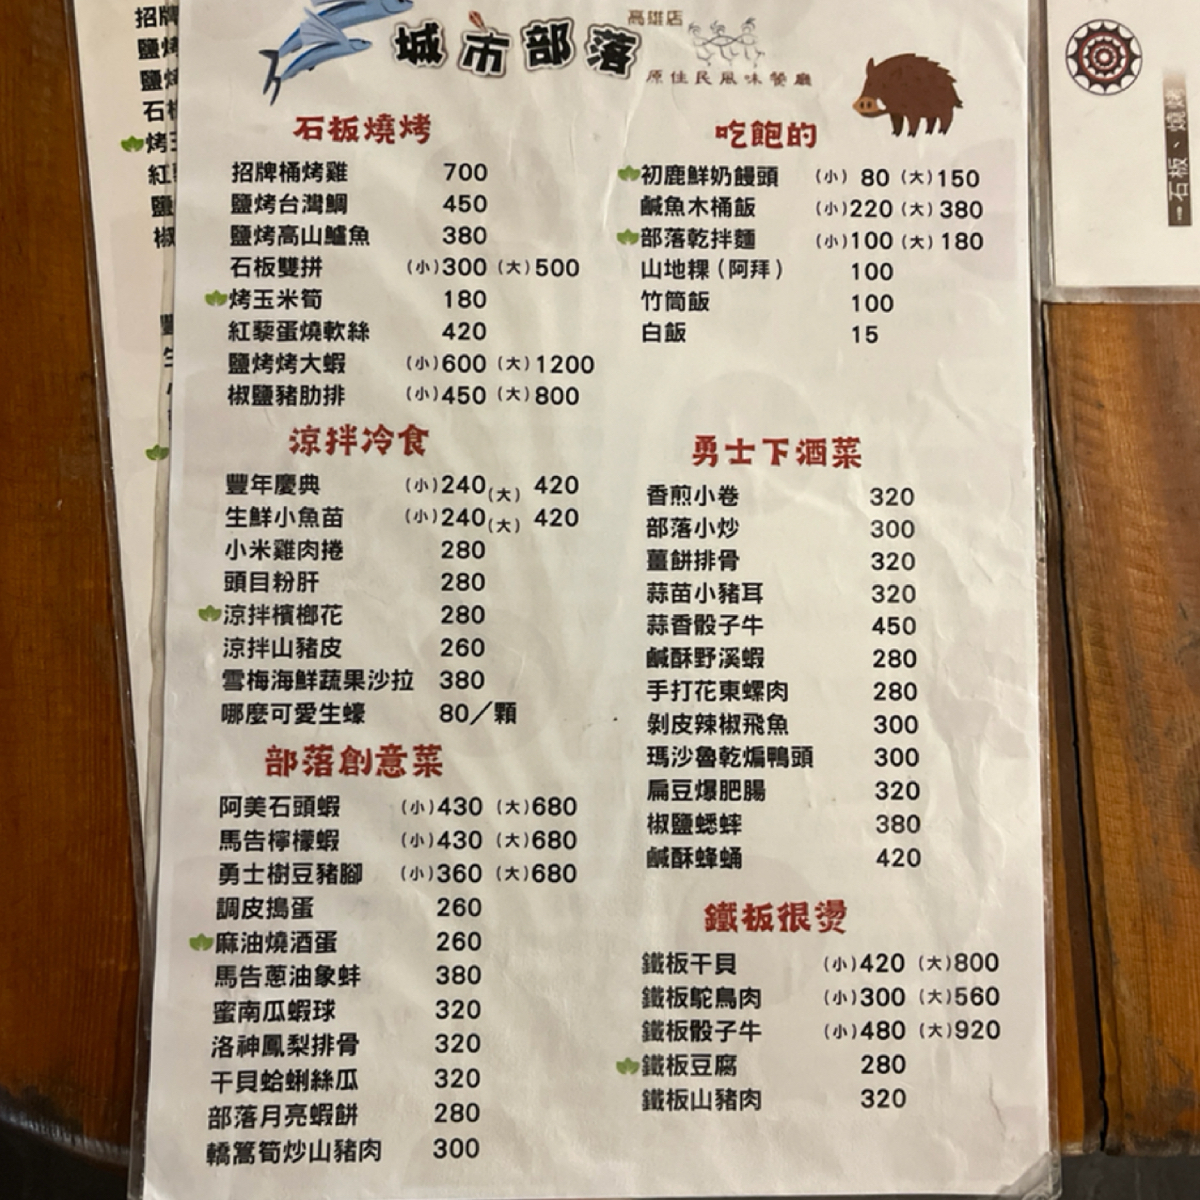 城市部落
高雄店
原住民風味餐廳
石板燒烤
招牌桶烤雞 700
鹽烤台灣鯛 450
鹽烤高山鱸魚 380
石板雙拼 (小)300 (大)500
烤玉米筍 180
紅藜蛋燒軟絲 420
鹽烤烤大蝦 (小)600 (大)1200
椒鹽豬肋排 (小)450 (大)800
涼拌冷食
豐年慶典 (小)240(大) 420
生鮮小魚苗 (小)240(大) 420
小米雞肉捲 280
頭目粉肝 280
涼拌檳榔花 280
涼拌山豬皮 260
雪梅海鮮蔬果沙拉 380
哪麼可愛生蠔 80／顆
部落創意菜
阿美石頭蝦 (小)430 (大)680
馬告檸檬蝦 (小)430 (大)680
勇士樹豆豬腳 (小)360 (大)680
調皮搗蛋 260
麻油燒酒蛋 260
馬告蔥油象蚌 380
蜜南瓜蝦球 320
洛神鳳梨排骨 320
干貝蛤蜊絲瓜 320
部落月亮蝦餅 280
轎篙筍炒山豬肉 300
吃飽的
初鹿鮮奶饅頭 (小) 80 (大)150
鹹魚木桶飯 (小)220 (大)380
部落乾拌麵 (小)100 (大)180
山地粿(阿拜) 100
竹筒飯 100
白飯 15
勇士下酒菜
香煎小卷 320
部落小炒 300
薑餅排骨 320
蒜苗小豬耳 320
蒜香骰子牛 450
鹹酥野溪蝦 280
手打花東螺肉 280
剝皮辣椒飛魚 300
瑪沙魯乾煸鴨頭 300
扁豆爆肥腸 320
椒鹽蟋蟀 380
鹹酥蜂蛹 420
鐵板很燙
鐵板干貝 (小)420 (大)800
鐵板鴕鳥肉 (小)300 (大)560
鐵板骰子牛 (小)480 (大)920
鐵板豆腐 280
鐵板山豬肉 320
石板、燒烤